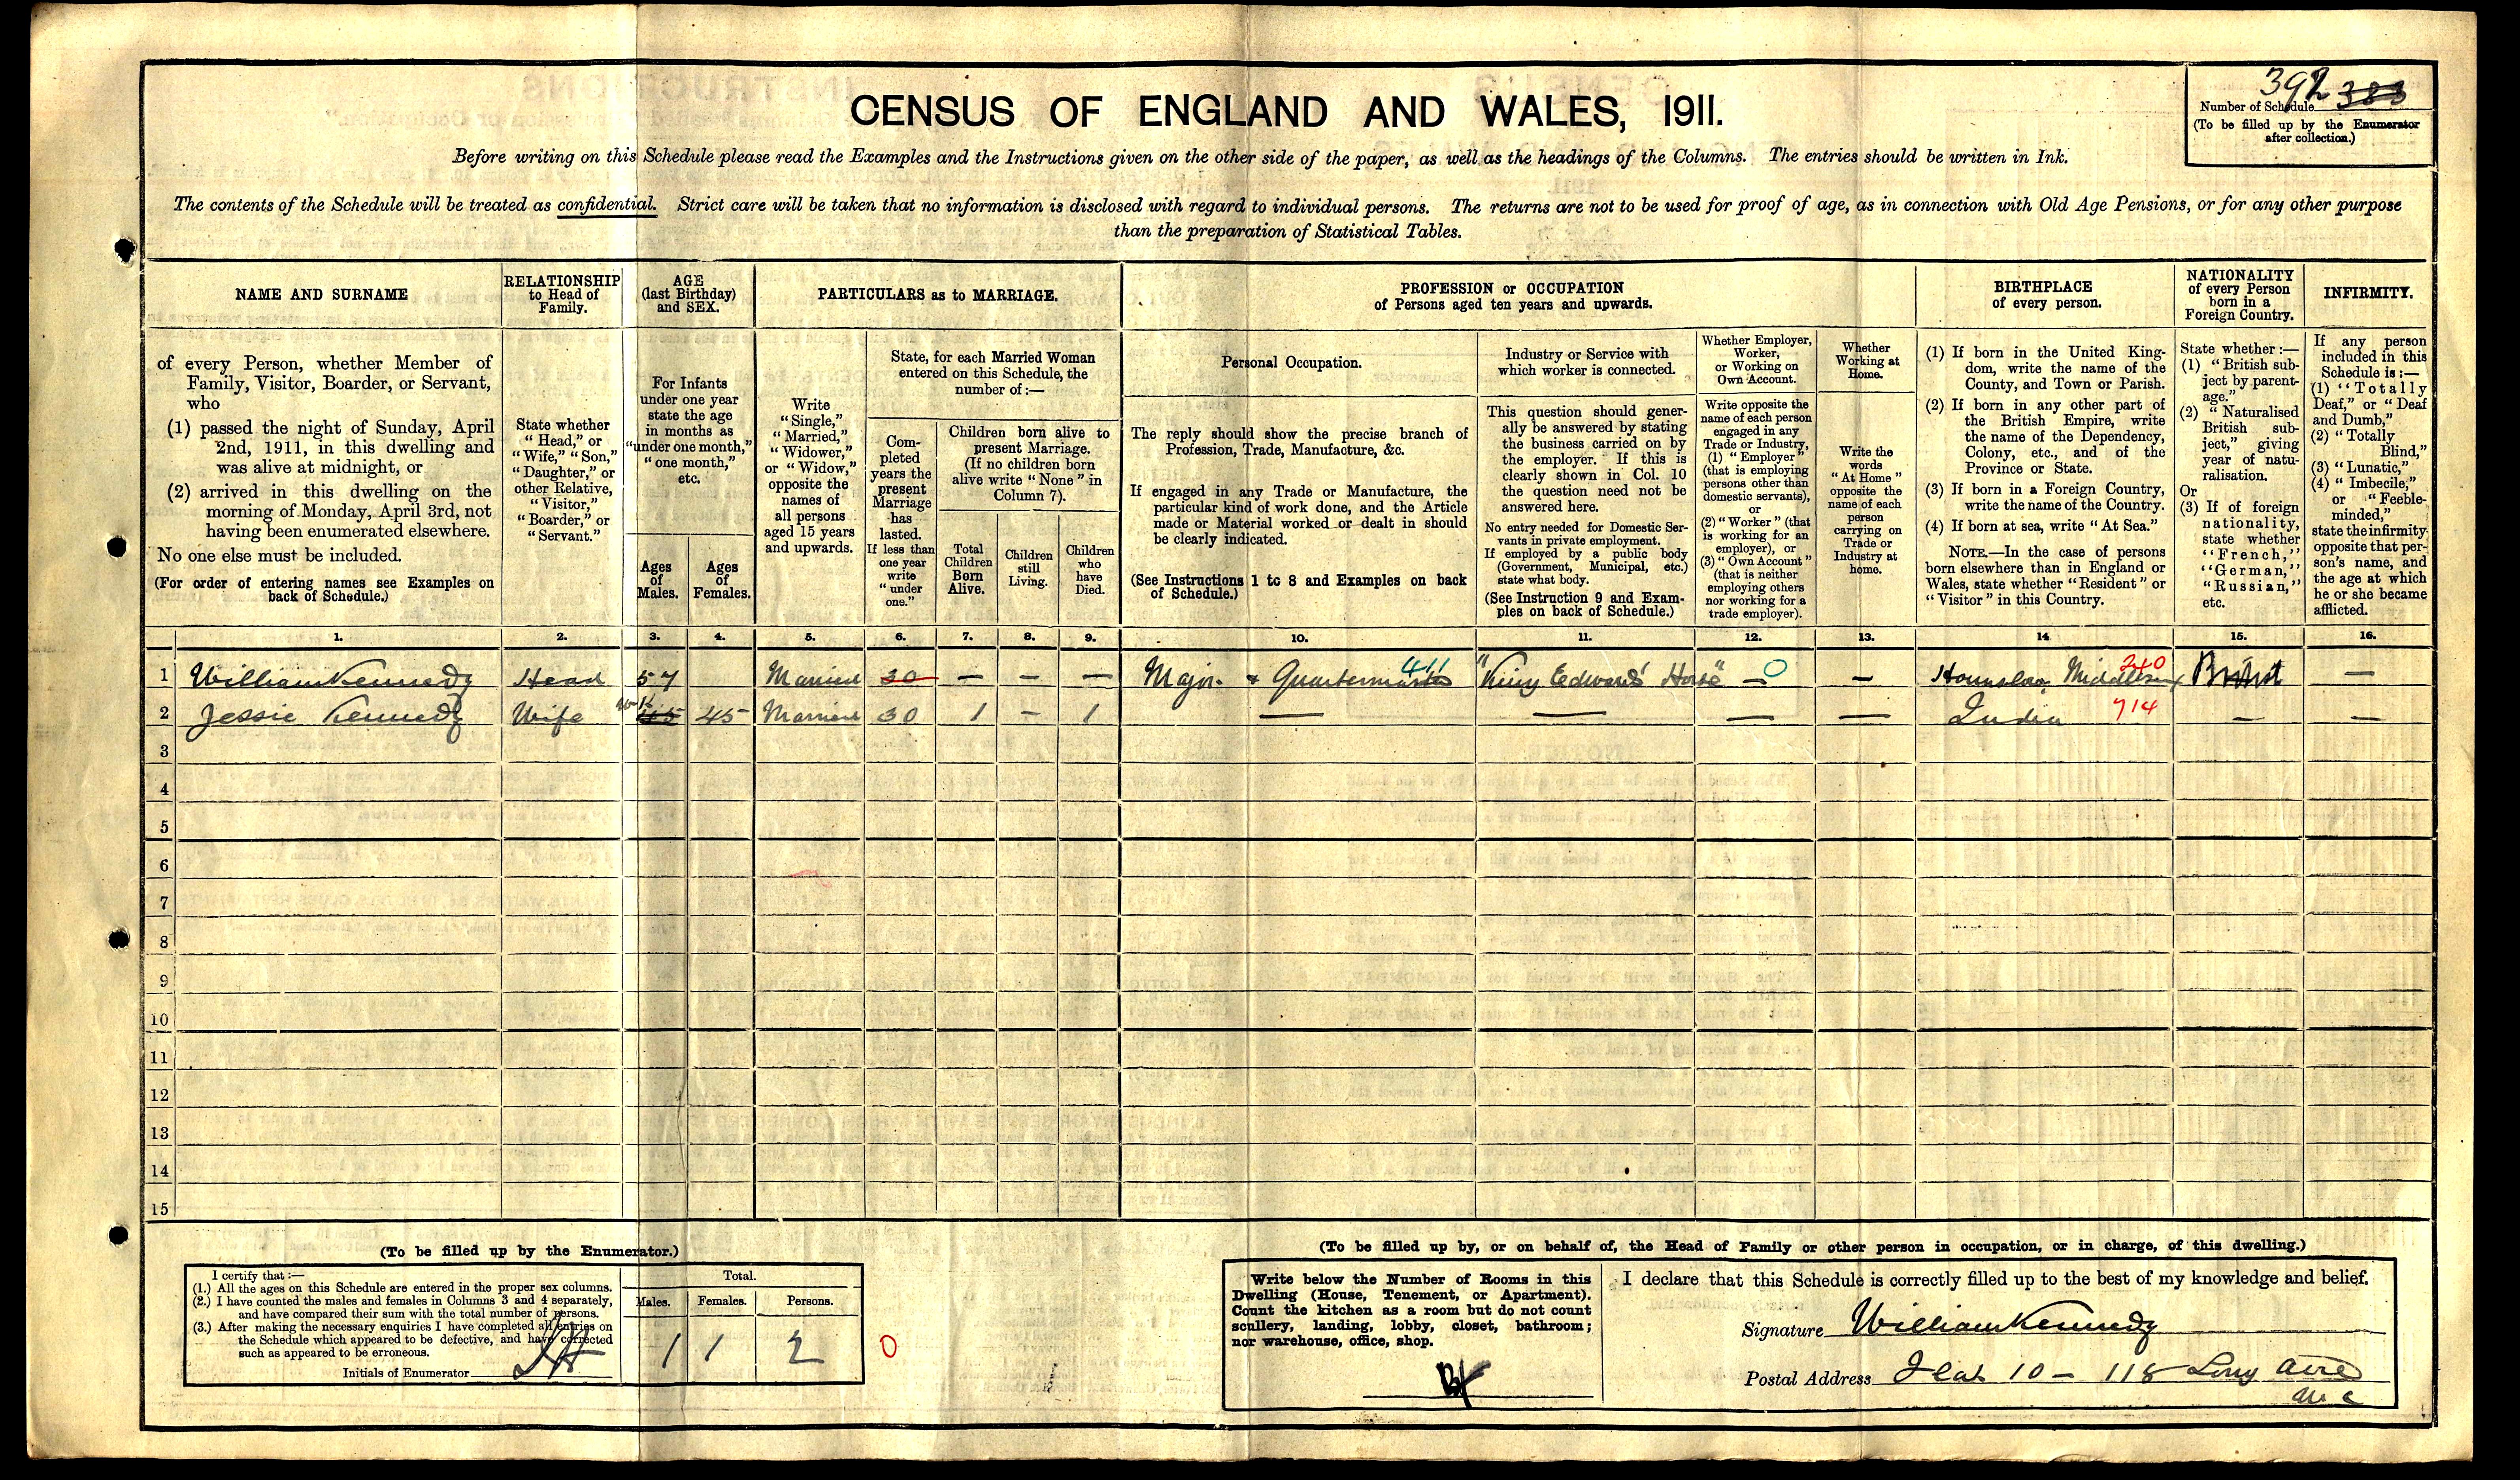 392 383
Number of Schedule
(To be filled up by the Enumerator
after collection.)
CENSUS OF ENGLAND AND WALES, 1911.
Before writing on this Schedule please read the Examples and the Instructions given on the other side of the paper, as well as the headings of the Columns. The entries should be written in Ink.
The contents of the Schedule will be treated as confidential. Strict care will be taken that no information is disclosed with regard to individual persons. The returns are not to be used for proof of age, as in connection with Old Age Pensions, or for any other purpose
than the preparation of Statistical Tables.
NAME AND SURNAME
of every Person, whether Member of
Family, Visitor, Boarder, or Servant,
who
(1) passed the night of Sunday, April
2nd, 1911, in this dwelling and
was alive at midnight, or
(2) arrived in this dwelling on the
morning of Monday, April 3rd, not
having been enumerated elsewhere.
No one else must be included.
(For order of entering names see Examples on
back of Schedule.)
RELATIONSHIP
to Head of
Family.
State whether
"Head," or
"Wife," "Son,"
"Daughter," or
other Relative,
"Visitor,"
"Boarder," or
"Servant."
AGE
(last Birthday)
and SEX.
For Infants
under one year
state the age
in months as
"under one month,"
"one month,"
etc.
Ages
of
Males.
Ages
of
Females.
PARTICULARS as to MARRIAGE.
Write
"Single,"
"Married,"
"Widower,"
or "Widow,"
opposite the
names of
all persons
aged 15 years
and upwards.
State, for each Married Woman
entered on this Schedule, the
number of:—
Com-
pleted
years the
present
Marriage
has
lasted.
If less than
one year
write
"under
one."
Children born alive to
present Marriage.
(If no children born
alive write "None" in
Column 7).
Total
Children
Born
Alive.
Children
still
Living.
Children
who
have
Died.
PROFESSION or OCCUPATION
of Persons aged ten years and upwards.
Personal Occupation.
The reply should show the precise branch of
Profession, Trade, Manufacture, &c.
If engaged in any Trade or Manufacture, the
particular kind of work done, and the Article
made or Material worked or dealt in should
be clearly indicated.
(See Instructions 1 to 8 and Examples on back
of Schedule.)
Industry or Service with
which worker is connected.
This question should gener-
ally be answered by stating
the business carried on by
the employer. If this is
clearly shown in Col. 10
the question need not be
answered here.
No entry needed for Domestic Ser-
vants in private employment.
If employed by a public body
(Government, Municipal, etc.)
state what body.
(See Instruction 9 and Exam-
ples on back of Schedule.)
Whether Employer,
Worker,
or Working on
Own Account.
Write opposite the
name of each person
engaged in any
Trade or Industry,
(1) "Employer"
(that is employing
persons other than
domestic servants),
or
(2) "Worker" (that
is working for an
employer), or
(3) "Own Account"
(that is neither
employing others
nor working for a
trade employer).
Whether
Working at
Home.
Write the
words
"At Home"
opposite the
name of each
person
carrying on
Trade or
Industry at
home.
BIRTHPLACE
of every person.
(1) If born in the United King-
dom, write the name of the
County, and Town or Parish.
(2) If born in any other part of
the British Empire, write
the name of the Dependency,
Colony, etc., and of the
Province or State.
(3) If born in a Foreign Country,
write the name of the Country.
(4) If born at sea, write "At Sea."
NOTE.—In the case of persons
born elsewhere than in England or
Wales, state whether "Resident" or
"Visitor" in this Country.
NATIONALITY
of every Person
born in a
Foreign Country.
State whether:—
(1) "British sub-
ject by parent-
age."
(2) "Naturalised
British sub-
ject," giving
year of natu-
ralisation.
Or
(3) If of foreign
nationality,
state whether
"French,"
"German,"
"Russian,"
etc.
INFIRMITY.
If any person
included in this
Schedule is:—
(1) "Totally
Deaf," or "Deaf
and Dumb,"
(2) "Totally
Blind,"
(3) "Lunatic,"
(4) "Imbecile,"
or "Feeble-
minded,"
state the infirmity
opposite that per-
son's name, and
the age at which
he or she became
afflicted.
1. 2. 3. 4. 5. 6. 7. 8. 9. 10. 11. 12. 13. 14 15. 16.
1 William Kennedy Head 57 Married 30 — — — Major & Quartermaster 411 "King Edwards' Horse" — 0 — Hounslow Middlesex 240 British —
2 Jessie Kennedy Wife 45 45 Married 30 1 — 1 — — — — India 714 — —
3
4
5
6
7
8
9
10
11
12
13
14
15
(To be filled up by the Enumerator.)
I certify that:—
(1.) All the ages on this Schedule are entered in the proper sex columns.
(2.) I have counted the males and females in Columns 3 and 4 separately,
and have compared their sum with the total number of persons.
(3.) After making the necessary enquiries I have completed all entries on
the Schedule which appeared to be defective, and have corrected
such as appeared to be erroneous.
Initials of Enumerator
Total.
Males. Females. Persons.
1 1 2 0
(To be filled up by, or on behalf of, the Head of Family or other person in occupation, or in charge, of this dwelling.)
Write below the Number of Rooms in this
Dwelling (House, Tenement, or Apartment).
Count the kitchen as a room but do not count
scullery, landing, lobby, closet, bathroom;
nor warehouse, office, shop.
I declare that this Schedule is correctly filled up to the best of my knowledge and belief.
Signature William Kennedy
Postal Address Flat 10 – 118 Long Acre
W C